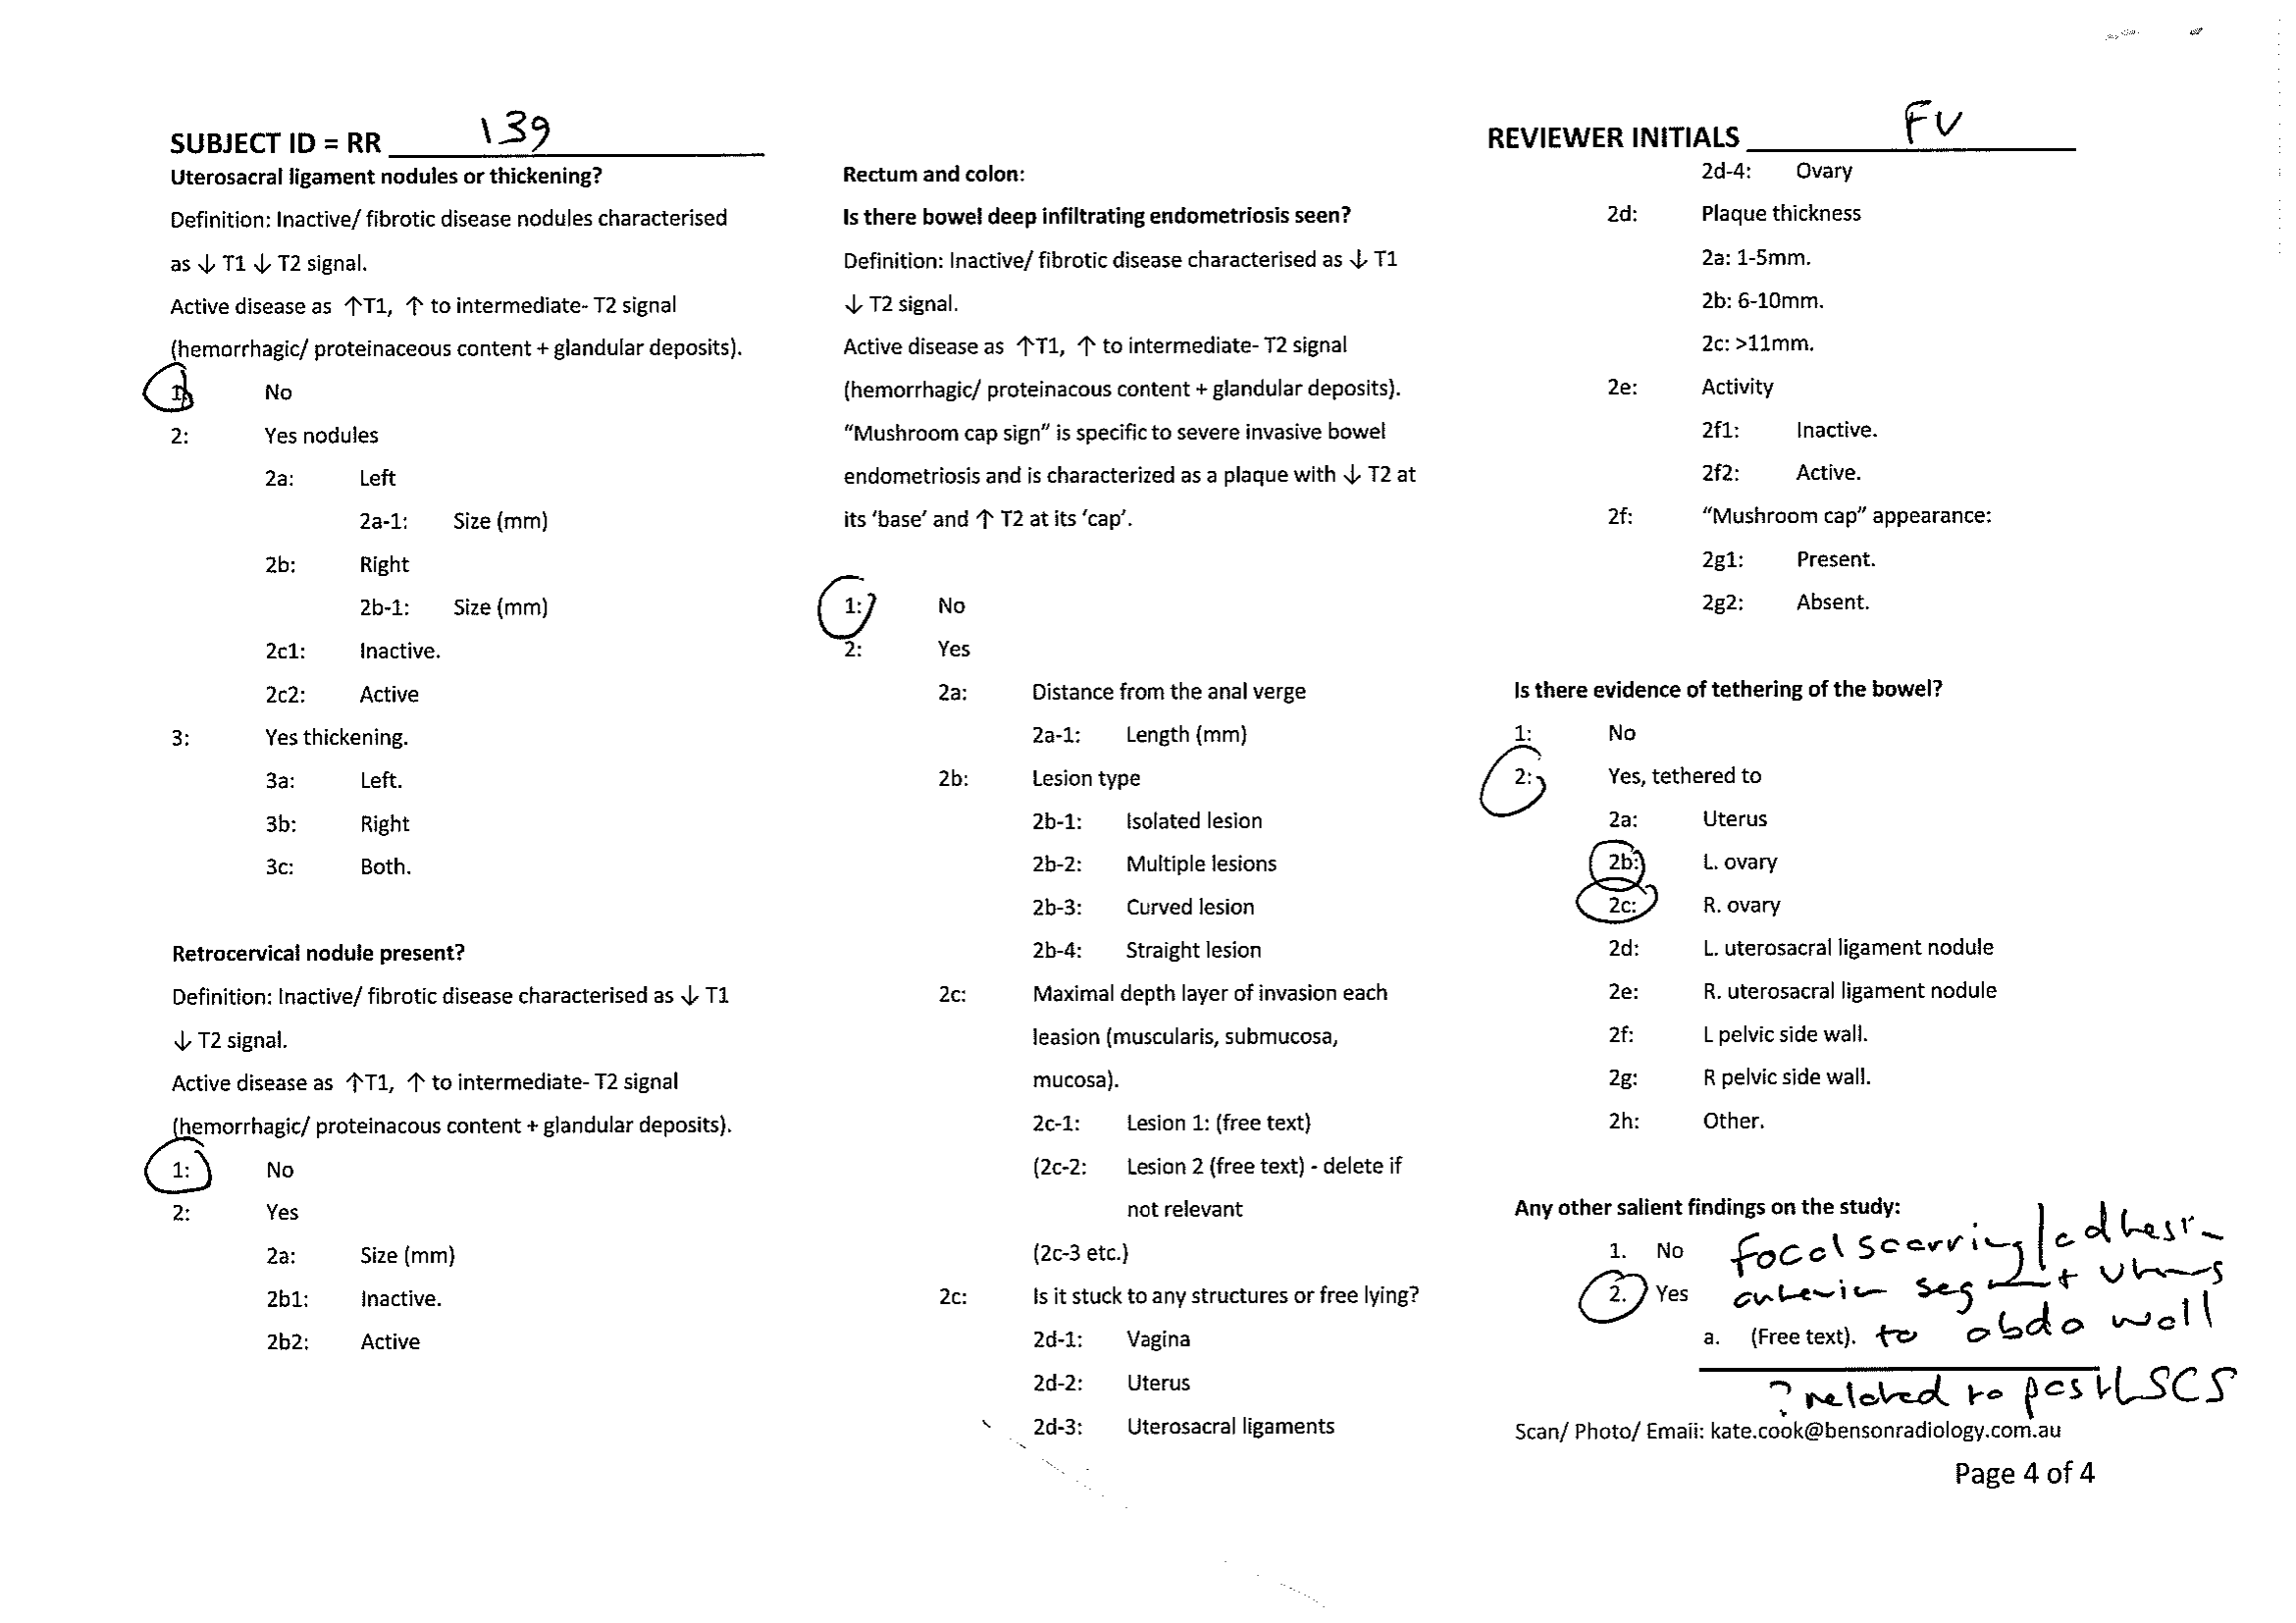 SUBJECT ID = RR 139
REVIEWER INITIALS FV
Uterosacral ligament nodules or thickening?
Definition: Inactive/ fibrotic disease nodules characterised
as ↓ T1 ↓ T2 signal.
Active disease as ↑T1, ↑ to intermediate- T2 signal
(hemorrhagic/ proteinaceous content + glandular deposits).
1: No
2: Yes nodules
2a: Left
2a-1: Size (mm)
2b: Right
2b-1: Size (mm)
2c1: Inactive.
2c2: Active
3: Yes thickening.
3a: Left.
3b: Right
3c: Both.
Retrocervical nodule present?
Definition: Inactive/ fibrotic disease characterised as ↓ T1
↓ T2 signal.
Active disease as ↑T1, ↑ to intermediate- T2 signal
(hemorrhagic/ proteinacous content + glandular deposits).
1: No
2: Yes
2a: Size (mm)
2b1: Inactive.
2b2: Active
Rectum and colon:
Is there bowel deep infiltrating endometriosis seen?
Definition: Inactive/ fibrotic disease characterised as ↓ T1
↓ T2 signal.
Active disease as ↑T1, ↑ to intermediate- T2 signal
(hemorrhagic/ proteinacous content + glandular deposits).
“Mushroom cap sign” is specific to severe invasive bowel
endometriosis and is characterized as a plaque with ↓ T2 at
its ‘base’ and ↑ T2 at its ‘cap’.
1: No
2: Yes
2a: Distance from the anal verge
2a-1: Length (mm)
2b: Lesion type
2b-1: Isolated lesion
2b-2: Multiple lesions
2b-3: Curved lesion
2b-4: Straight lesion
2c: Maximal depth layer of invasion each
leasion (muscularis, submucosa,
mucosa).
2c-1: Lesion 1: (free text)
(2c-2: Lesion 2 (free text) - delete if
not relevant
(2c-3 etc.)
2c: Is it stuck to any structures or free lying?
2d-1: Vagina
2d-2: Uterus
2d-3: Uterosacral ligaments
2d-4: Ovary
2d: Plaque thickness
2a: 1-5mm.
2b: 6-10mm.
2c: >11mm.
2e: Activity
2f1: Inactive.
2f2: Active.
2f: “Mushroom cap” appearance:
2g1: Present.
2g2: Absent.
Is there evidence of tethering of the bowel?
1: No
2: Yes, tethered to
2a: Uterus
2b: L. ovary
2c: R. ovary
2d: L. uterosacral ligament nodule
2e: R. uterosacral ligament nodule
2f: L pelvic side wall.
2g: R pelvic side wall.
2h: Other.
Any other salient findings on the study:
1. No focal scarring/adhesion
2. Yes anterior segment uterus
a. (Free text). to abdo wall
? related to past LSCS
Scan/ Photo/ Email: kate.cook@bensonradiology.com.au
Page 4 of 4